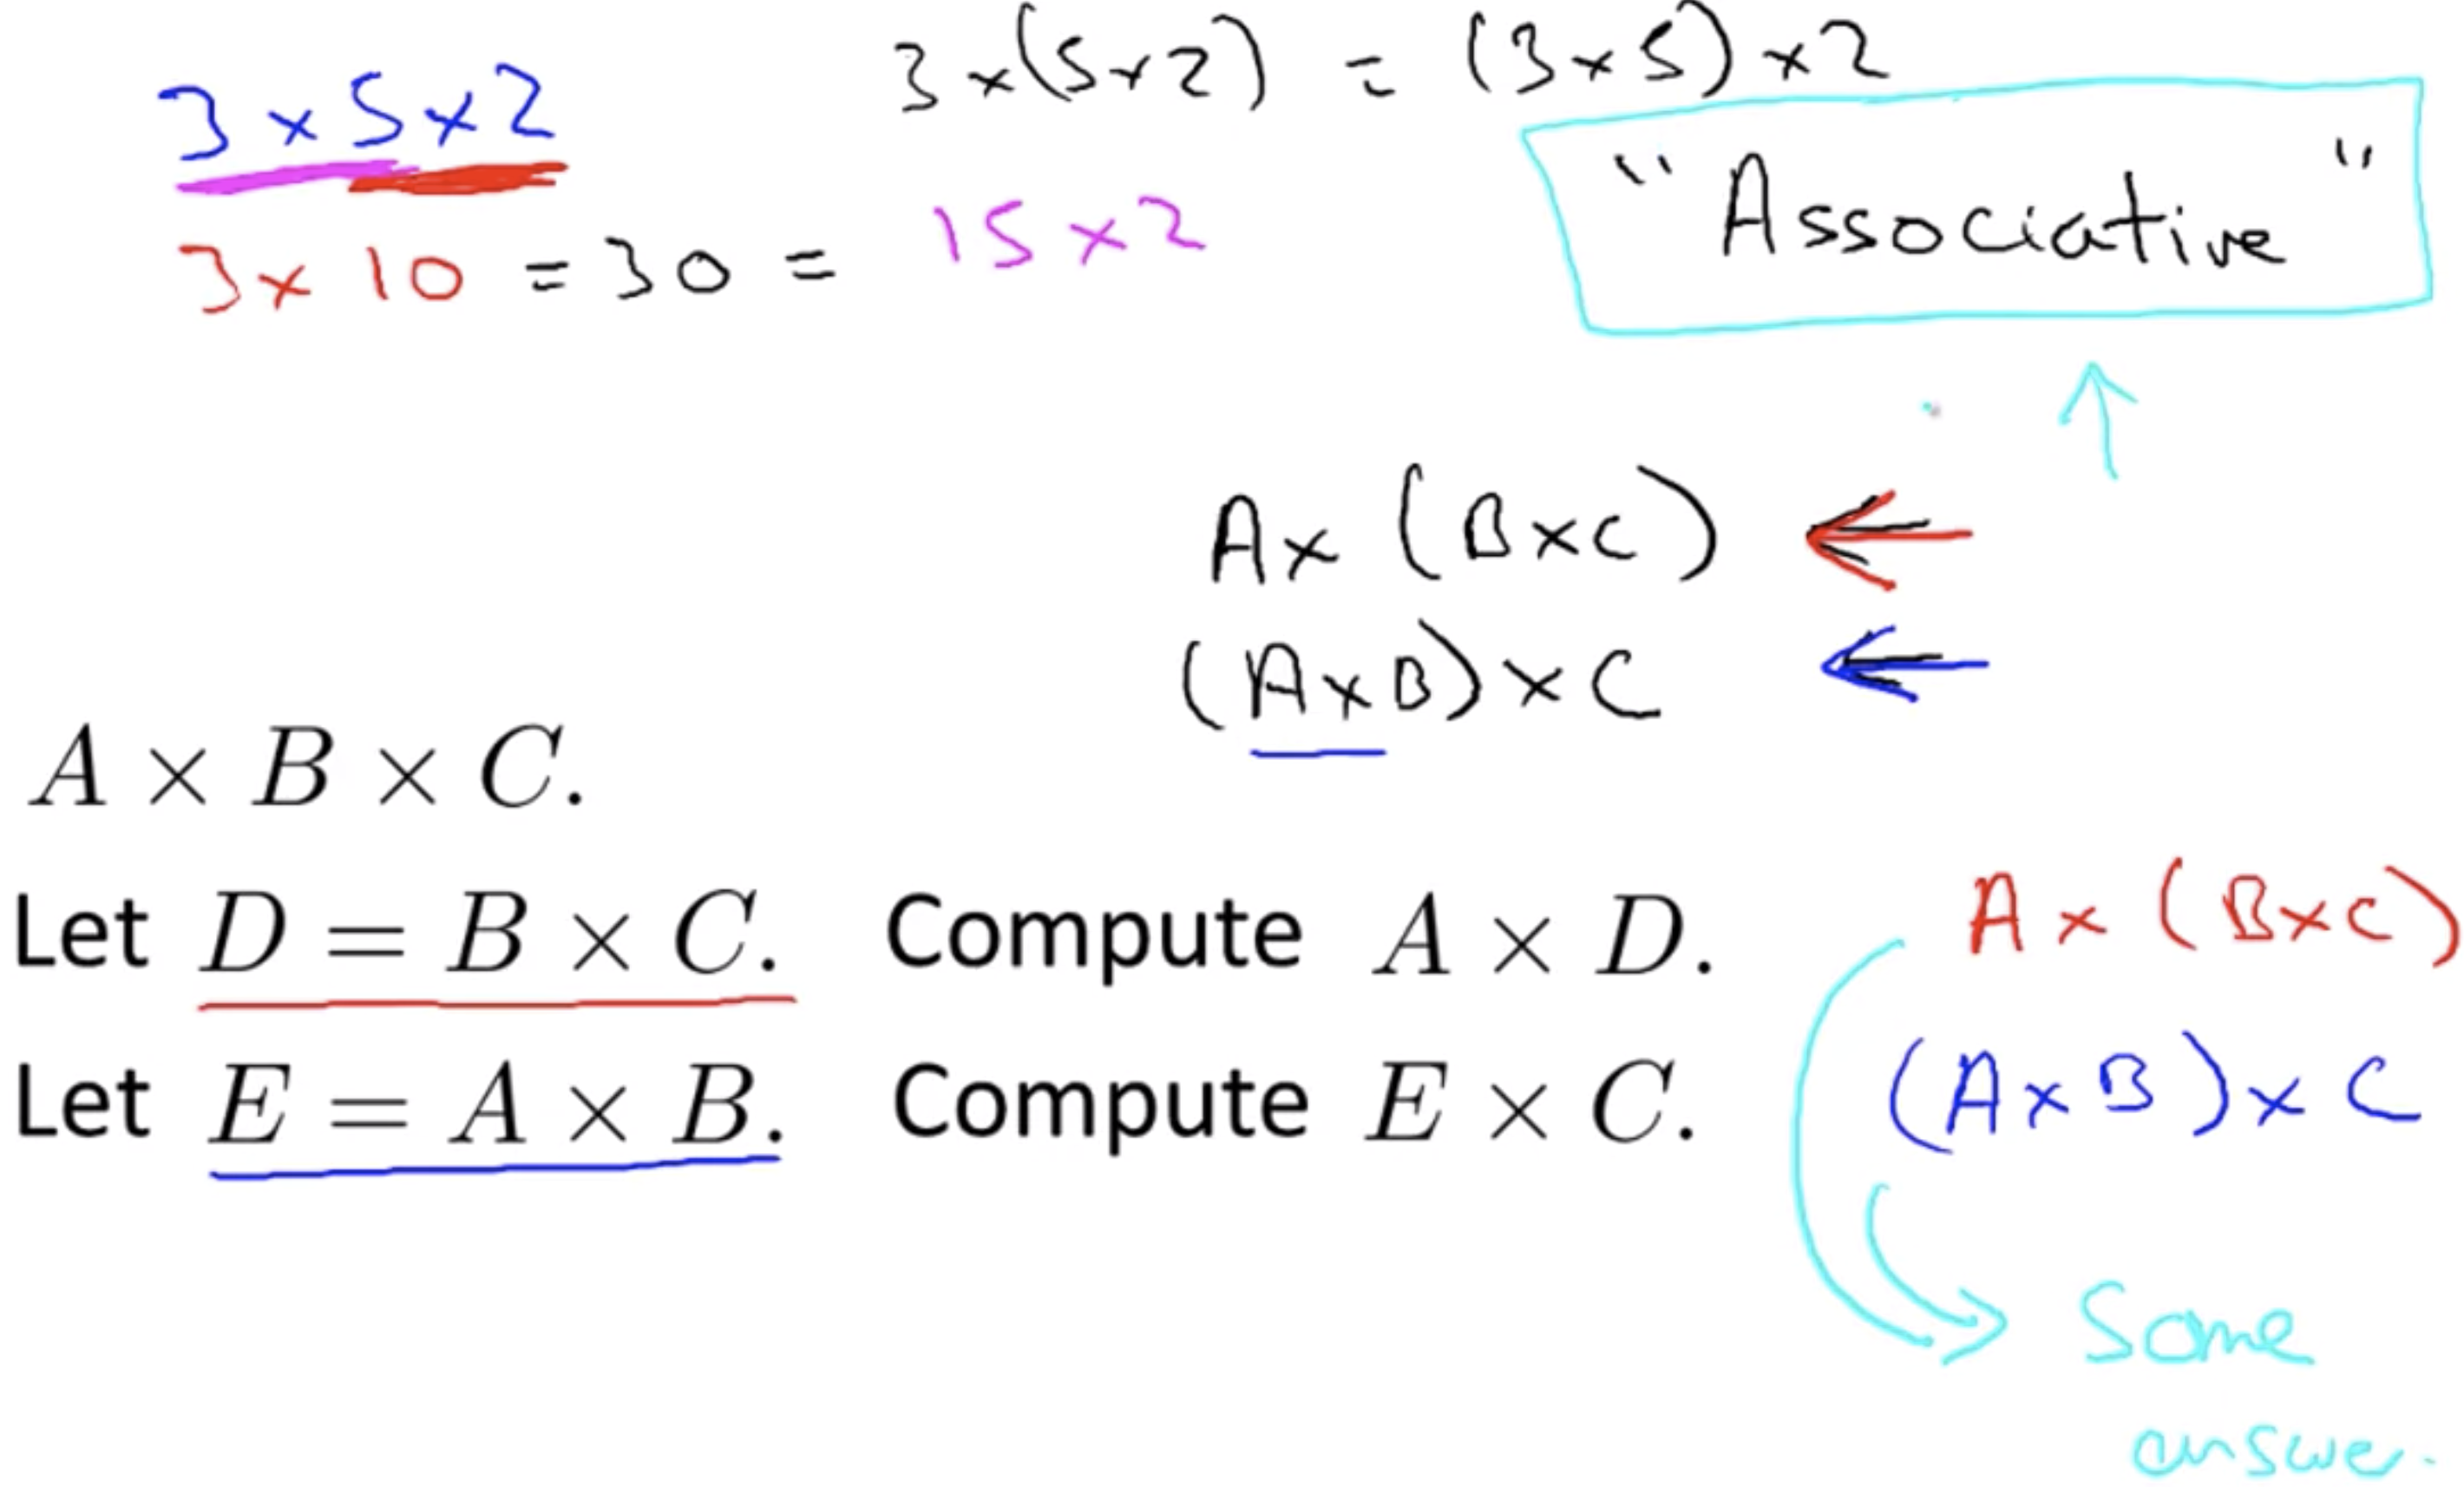 3 × 5 × 2
3 × (5 × 2) = (3 × 5) × 2
3 × 10 = 30 = 15 × 2
"Associative"
A × (B × C)
(A × B) × C
A × B × C.
Let D = B × C. Compute A × D. A × (B × C)
Let E = A × B. Compute E × C. (A × B) × C
Same
answer.